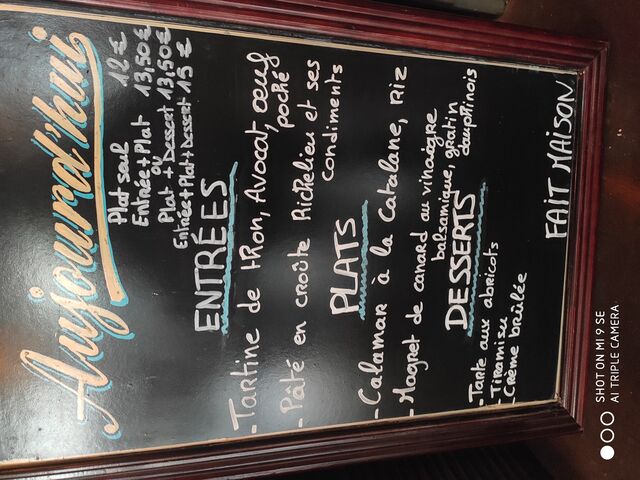 Aujourd'hui
Plat seul 12€
Entrée + Plat 13,50€
ou
Plat + Dessert 13,50€
Entrée + Plat + Dessert 15€
ENTRÉES
- Tartine de thon, Avocat, œuf
poché
- Pâté en croûte Richelieu et ses
condiments
PLATS
- Calamar à la Catalane, riz
- Magret de canard au vinaigre
balsamique, gratin
dauphinois
DESSERTS
- Tarte aux abricots
- Tiramisu
- Crème brûlée
FAIT MAISON
SHOT ON MI 9 SE
AI TRIPLE CAMERA